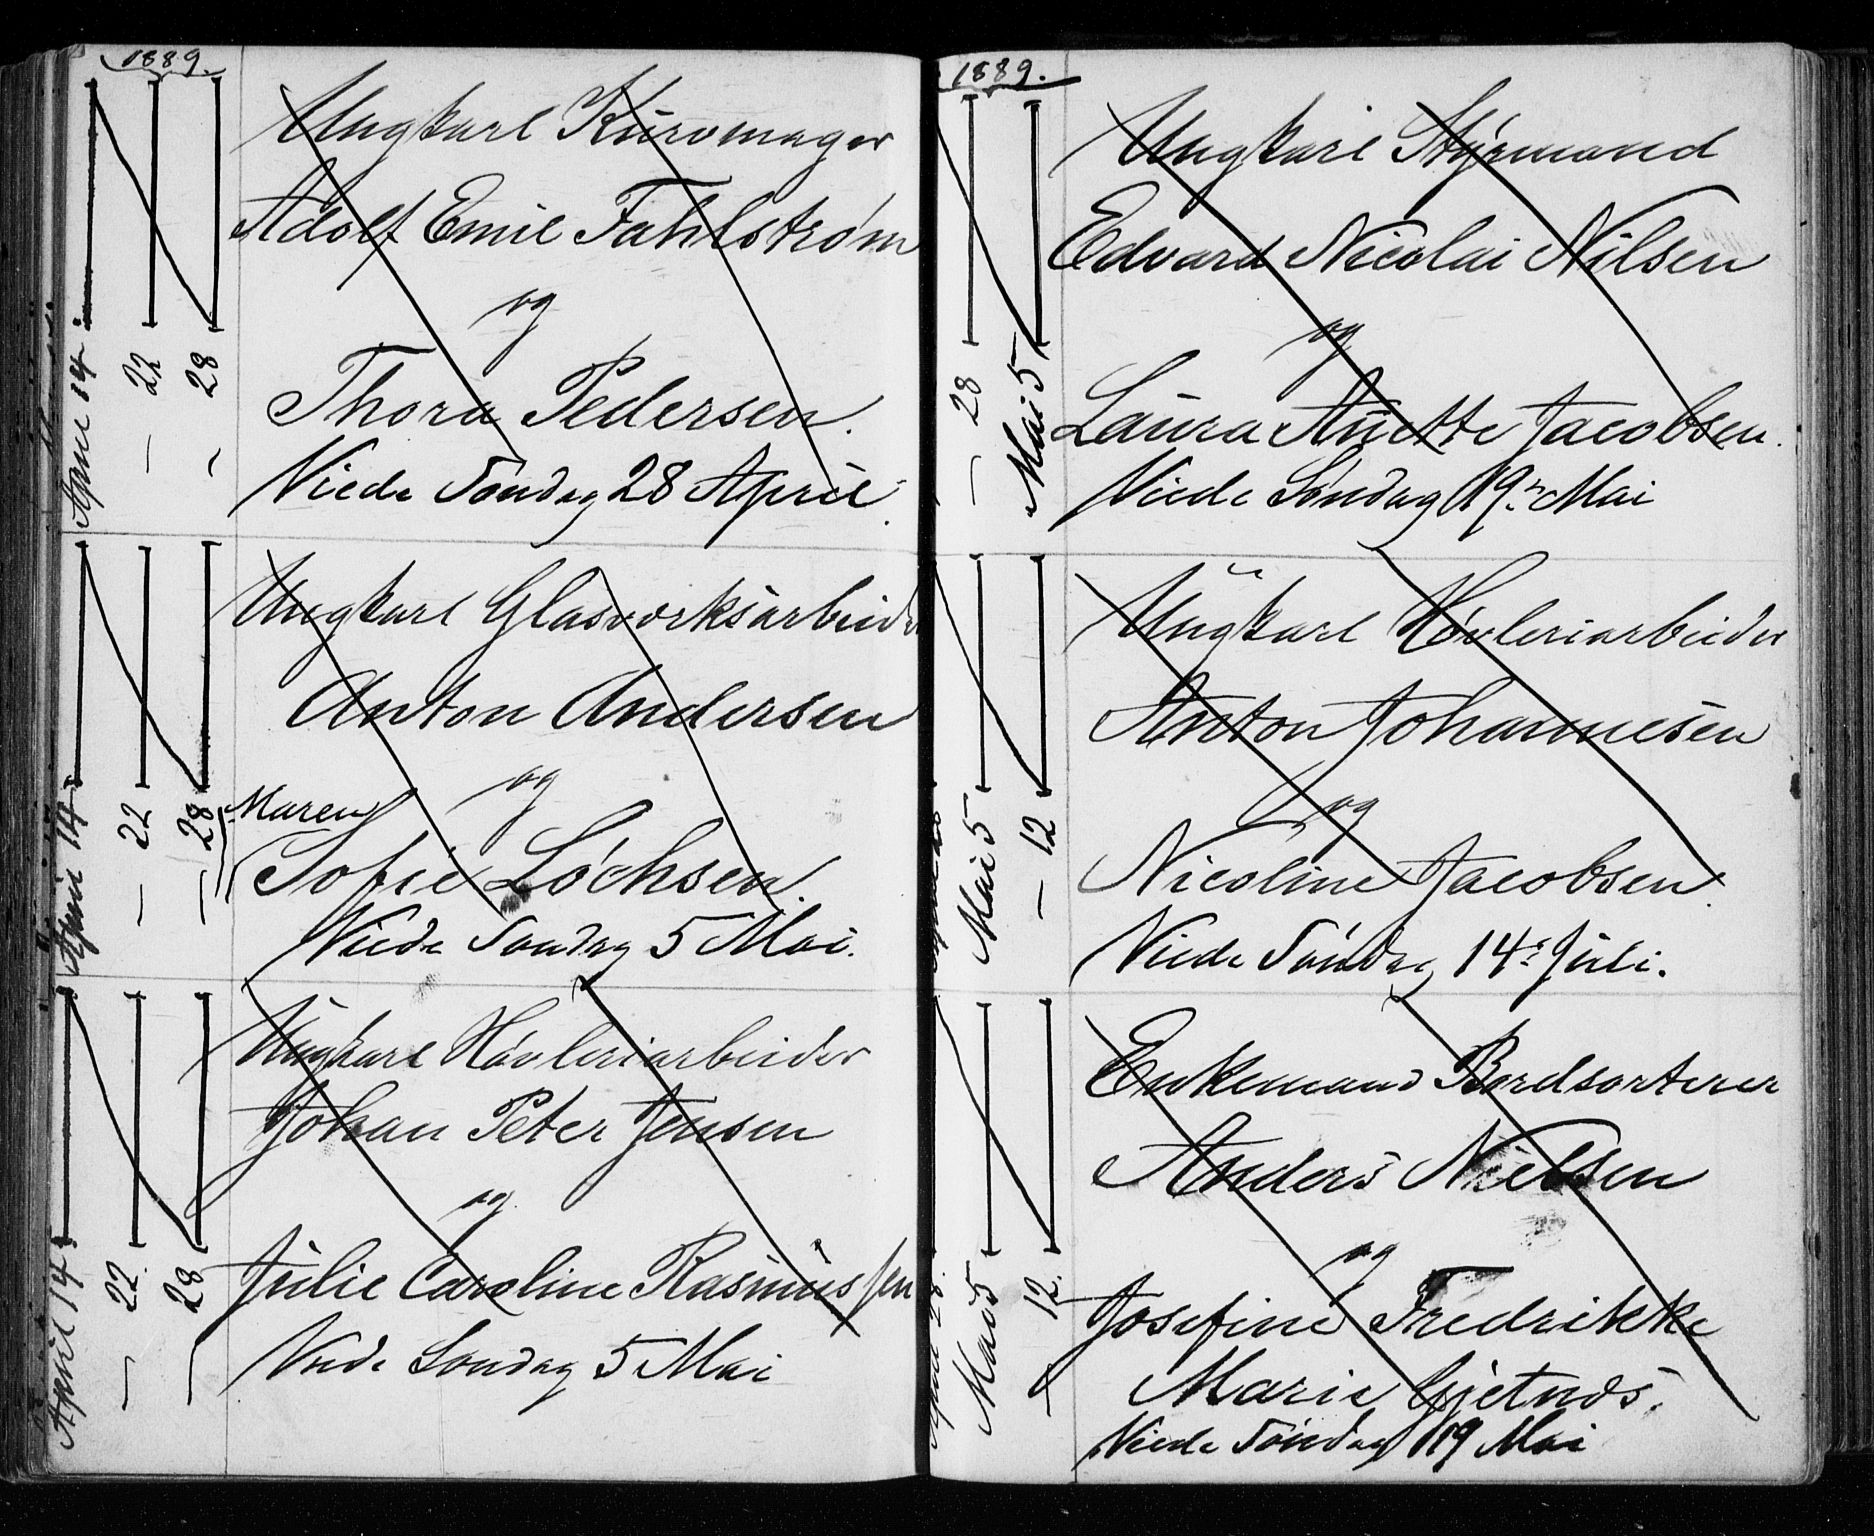 1889.
April 14
— 22
— 28
Ungkarl Kurvmager
Adolf Emil Fahlstrøm
og
Thora Pedersen.
Viede Søndag 28 April.
April 14
— 22
— 28
Ungkarl Glasværksarbeider
Anton Andersen
og
Maren
Sofie Löchsen.
Viede Søndag 5 Mai.
April 14
— 22
— 28
Ungkarl Høvleriarbeider
Johan Peter Jensen
og
Julie Caroline Rasmussen
Viede Søndag 5 Mai
1889.
— 28
Mai 5
Ungkarl Styrmand
Edvard Nicolai Nilsen
og
Laura Anette Jacobsen.
Viede Søndag 19. Mai
Mai 5
— 12
Ungkarl Høvleriarbeider
Anton Johannesen
og
Nicoline Jacobsen.
Viede Søndag 14. Juli.
April 28.
Mai 5
— 12.
Enkemand Bordsorterer
Anders Nielsen
og
Josefine Fredrikke
Marie Gjetnæs.
Viede Søndag 19 Mai